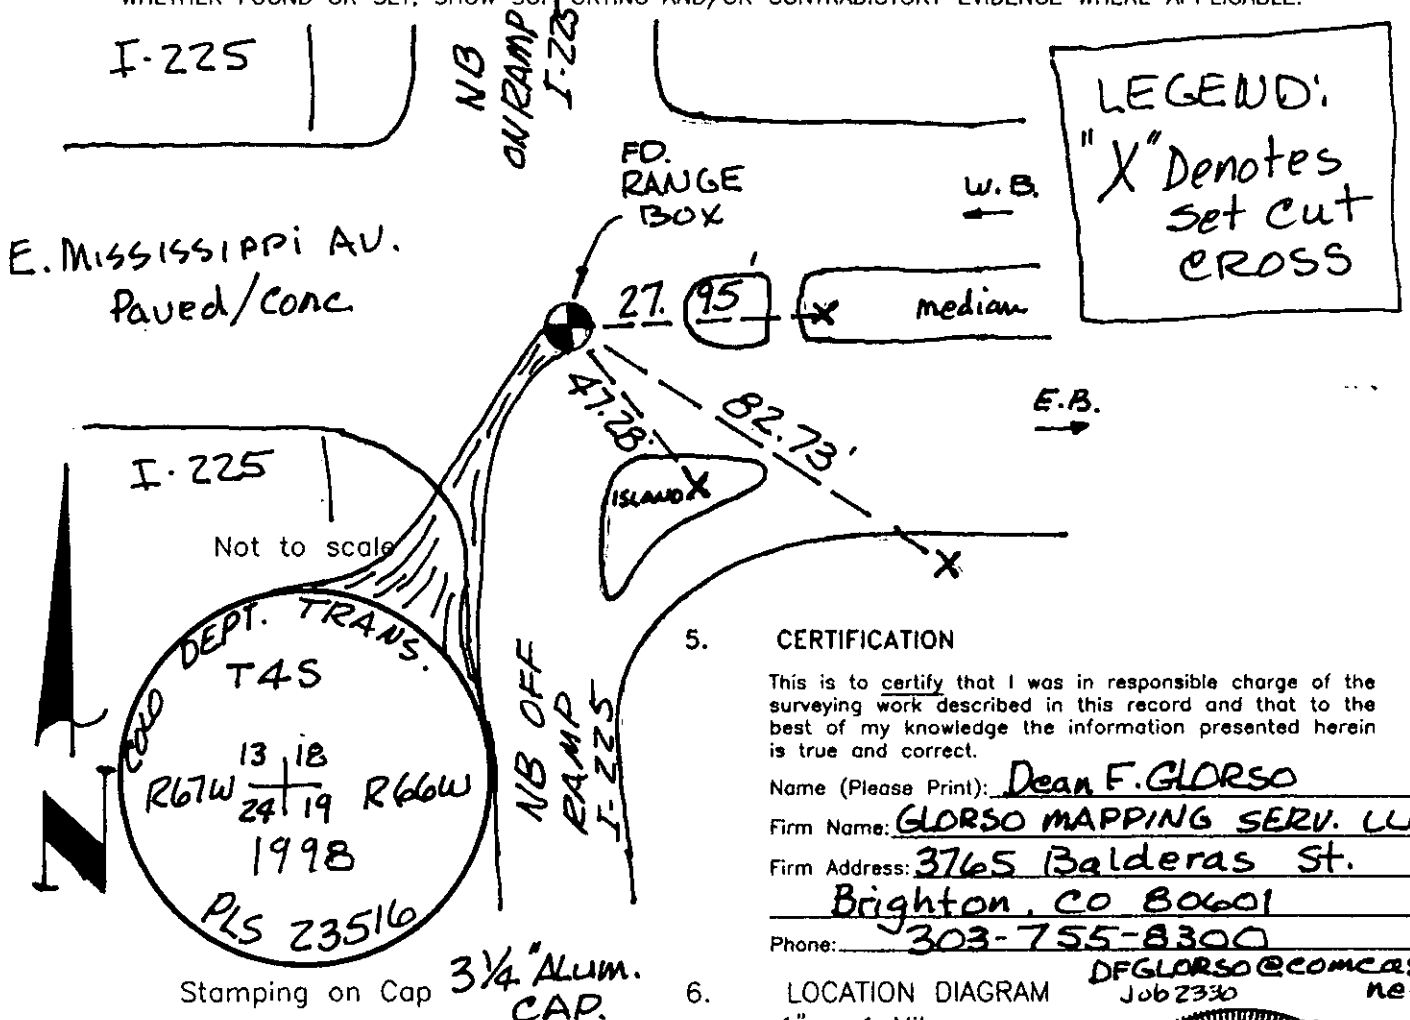 WHETHER FOUND OR SET, SHOW SUPPORTING AND/OR CONTRADICTORY EVIDENCE WHERE APPLICABLE.
I-225
NB
ONRAMP
I-225
LEGEND:
"X" Denotes
set cut
CROSS
FD.
RANGE
BOX
W.B.
E. Mississippi AV.
Paved/Conc
27.95'
median
47.28'
82.73'
E.B.
I-225
ISLAND
Not to scale
COLO DEPT. TRANS.
T4S
13 18
R67W R66W
24 19
1998
PLS 23516
N
NB OFF
RAMP
I-225
Stamping on Cap
3 1/4" ALUM.
CAP.
5. CERTIFICATION
This is to certify that I was in responsible charge of the
surveying work described in this record and that to the
best of my knowledge the information presented herein
is true and correct.
Name (Please Print): Dean F. GLORSO
Firm Name: GLORSO MAPPING SERV. LL
Firm Address: 3765 Balderas St.
Brighton, CO 80601
Phone: 303-755-8300
DFGLORSO@comcas
ne
6. LOCATION DIAGRAM
Job 2330